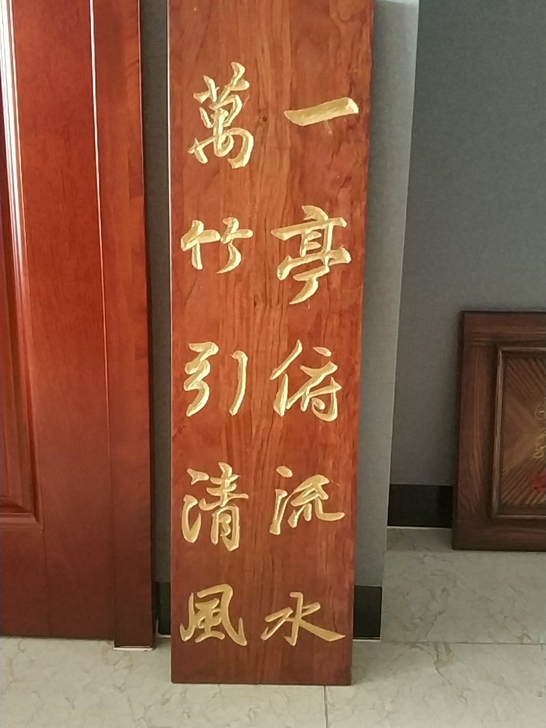 一亭俯流水
萬竹引清風